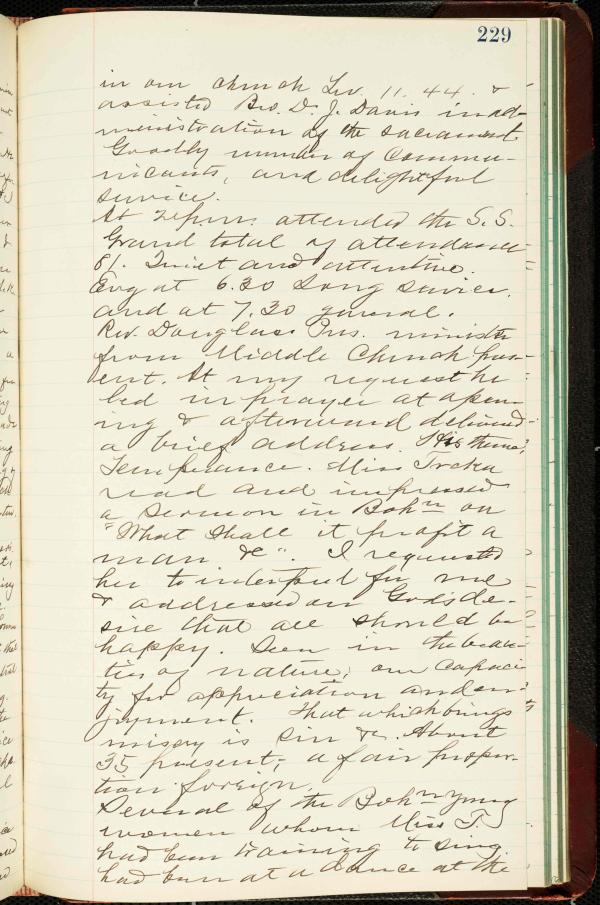 229
in our church Lev. 11.44. &
assisted Bro. D. J. Davis in ad-
ministration of the sacrament
Goodly number of commu-
nicants, and delightful
service.
At 2 1/2 p.m. attended the S.S.
Grand total of attendance
81. Quiet and attentive.
Evg at 6.30 Song service.
and at 7.30 general.
Rev. Douglass Pres. minister
from Middle Church pres-
ent. At my request he
led in prayer at open-
ing & afterward delivered
a brief address. His theme,
Temperance. Miss Trcka
read and impressed
a sermon in Bohn on
"What shall it profit a
man &c". I requested
her to interpret for me
& addressed on God's de-
sire that all should be
happy. Seen in the beau-
ties of nature; our capaci-
ty for appreciation and en-
joyment. That which brings
misery is sin &c. About
35 present; a fair propor-
tion foreign.
Several of the Bohn young
women whom Miss T.
had been training to sing
had been at a dance at the